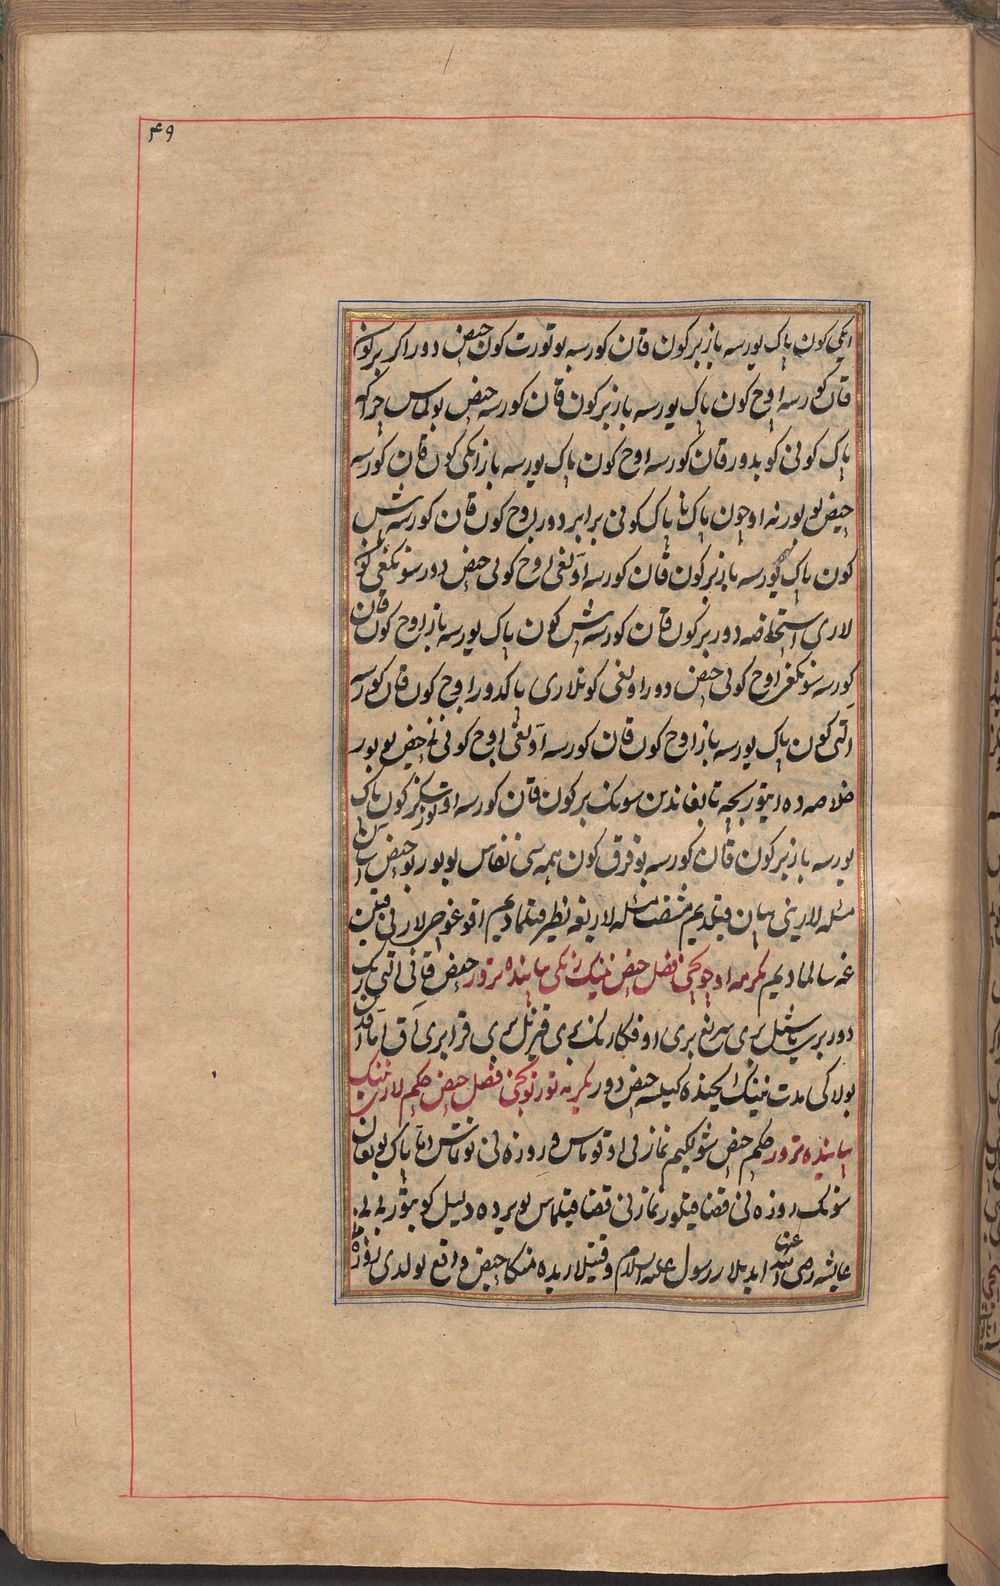 ۴۹
ایکی کون پاک یورسه باز بر کون قان کورسه بو تورت کون حیض دور اکر بر کون
قان کورسه اوح کون پاک یورسه باز بر کون قان کورسه حیض بولماس چراکه
پاک کونی کوبدور قان کورسه اوح کون پاک یورسه باز ایکی کون قان کورسه
حیض بولور نه اوچون پاک ناپاک کونی برابر دور اوح کون قان کورسه شش
کون پاک یورسه باز بر کون قان کورسه اولغی اوح کونی حیض دور سونکغی کون
لاری استحاضه دور بر کون قان کورسه شش کون پاک یورسه باز اوح کون قان
کورسه سونکغی اوح کونی حیض دور اولغی کونلاری پاکدور اوح کون قان کورسه
التی کون پاک یورسه باز اوح کون قان کورسه اولغی اوح کونی نی حیض بولور
خلاصه ده ایتور بچه تابغاندین سونک بر کون قان کورسه اوتوز سکز کون پاک
یورسه باز بر کون قان کورسه بو قرق کون همه سی نفاس بولور بو حیض
مسئله لارینی بیان قیلدیم مسئله لاریغه نظر قیلمادیم
غه سالمادیم یکرمه اوچونچی فصل حیض نینک رنکی بیانیده ترور حیض قانی التی رنک
دور بری یاشل بری ساریغ بری بری قیزیل بری قرا بری آق
بولاکی مدت نینک ایچیده کیلسه حیض دور یکرمه تورتونچی فصل حیض حکم لاری نینک
بیانیده ترور حکم حیض شولکیم نمازنی اوتوماس و روزه نی توتماس اما پاک بولغان
سونک روزه نی قضا قیلور نمازنی قضا قیلماس بو یرده دلیل کویتور بی بی
عایشه رضی الله عنها ایدیلار رسول علیه السلام وقتیلاریده منکا حیض واقع بولدی روزه